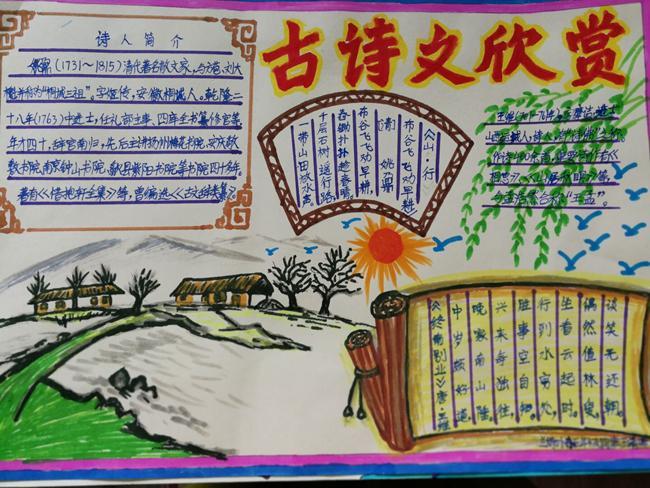 古诗文欣赏
诗人简介
姚鼐(1731~1815)清代著名散文家,与方苞、刘大
櫆并称为"桐城三祖"。字姬传,安徽桐城人。乾隆二
十八年(1763)中进士,任礼部主事、四库全书纂修官等,
年才四十,辞官南归,先后主讲扬州梅花书院、安庆敬
敷书院、南京钟山书院、歙县紫阳书院等书院四十多年。
著有《惜抱轩全集》等,曾编选《古文辞类纂》。
《山·行》
布谷飞飞劝早耕
[清] 姚鼐
布谷飞飞劝早耕,
舂锄扑扑趁春晴。
千层石树遥行路,
一带山田放水声。
王维
山西
人,诗人
今存诗400余首
相思》《山居秋暝》等,
《终南别业》唐·王维
中岁颇好道,
晚家南山陲。
兴来每独往,
胜事空自知。
行到水穷处,
坐看云起时。
偶然值林叟,
谈笑无还期。